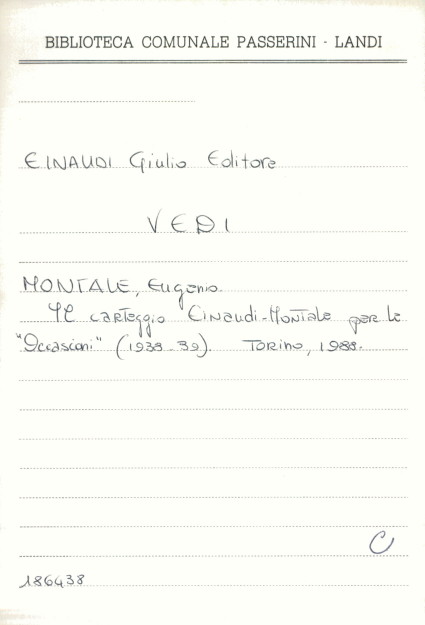 BIBLIOTECA COMUNALE PASSERINI - LANDI
EINAUDI Giulio Editore
VEDI
MONTALE, Eugenio.
Il carteggio Einaudi-Montale per le
"Occasioni" (1938-39). Torino, 1988.
C
186438